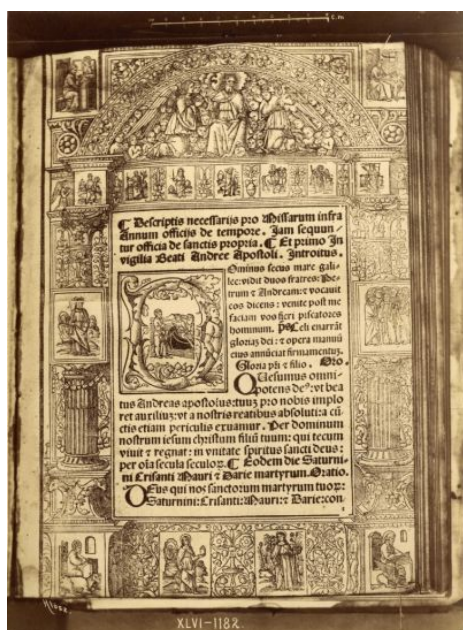 c m
¶ Descriptis necessarijs pro Missarum infra
Annum officijs de tempore. Jam sequun-
tur officia de sanctis propria. ¶ Et primo In
vigilia Beati Andree Apostoli. Introitus.
Dominus secus mare gali-
lee: vidit duos fratres: Pe-
trum ⁊ Andream: ⁊ vocauit
eos dicens: venite post me
faciam vos fieri piscatores
hominum. p̄s Celi enarrāt
gloriaʒ dei: ⁊ opera manuū
eius annūciat firmamentuʒ.
Gloria pr̄i ⁊ filio. Oro.
QUesumus omni-
potens de⁹: vt bea
tus Andreas apostolus: tuuʒ pro nobis implo
ret auxiliuʒ: vt a nostris reatibus absoluti: a cū
ctis etiam periculis exuamur. Per dominum
nostrum iesum christum filiū tuum: qui tecum
viuit ⁊ regnat: in vnitate spiritus sancti deus:
per oīa secula seculoꝝ. ¶ Eodem die Saturni-
ni Crisanti Mauri ⁊ Darie martyrum. Oratio.
DEus qui nos sanctorum martyrum tuoꝝ:
Saturnini: Crisanti: Mauri: ⁊ Darie: con
XLVI-1182.